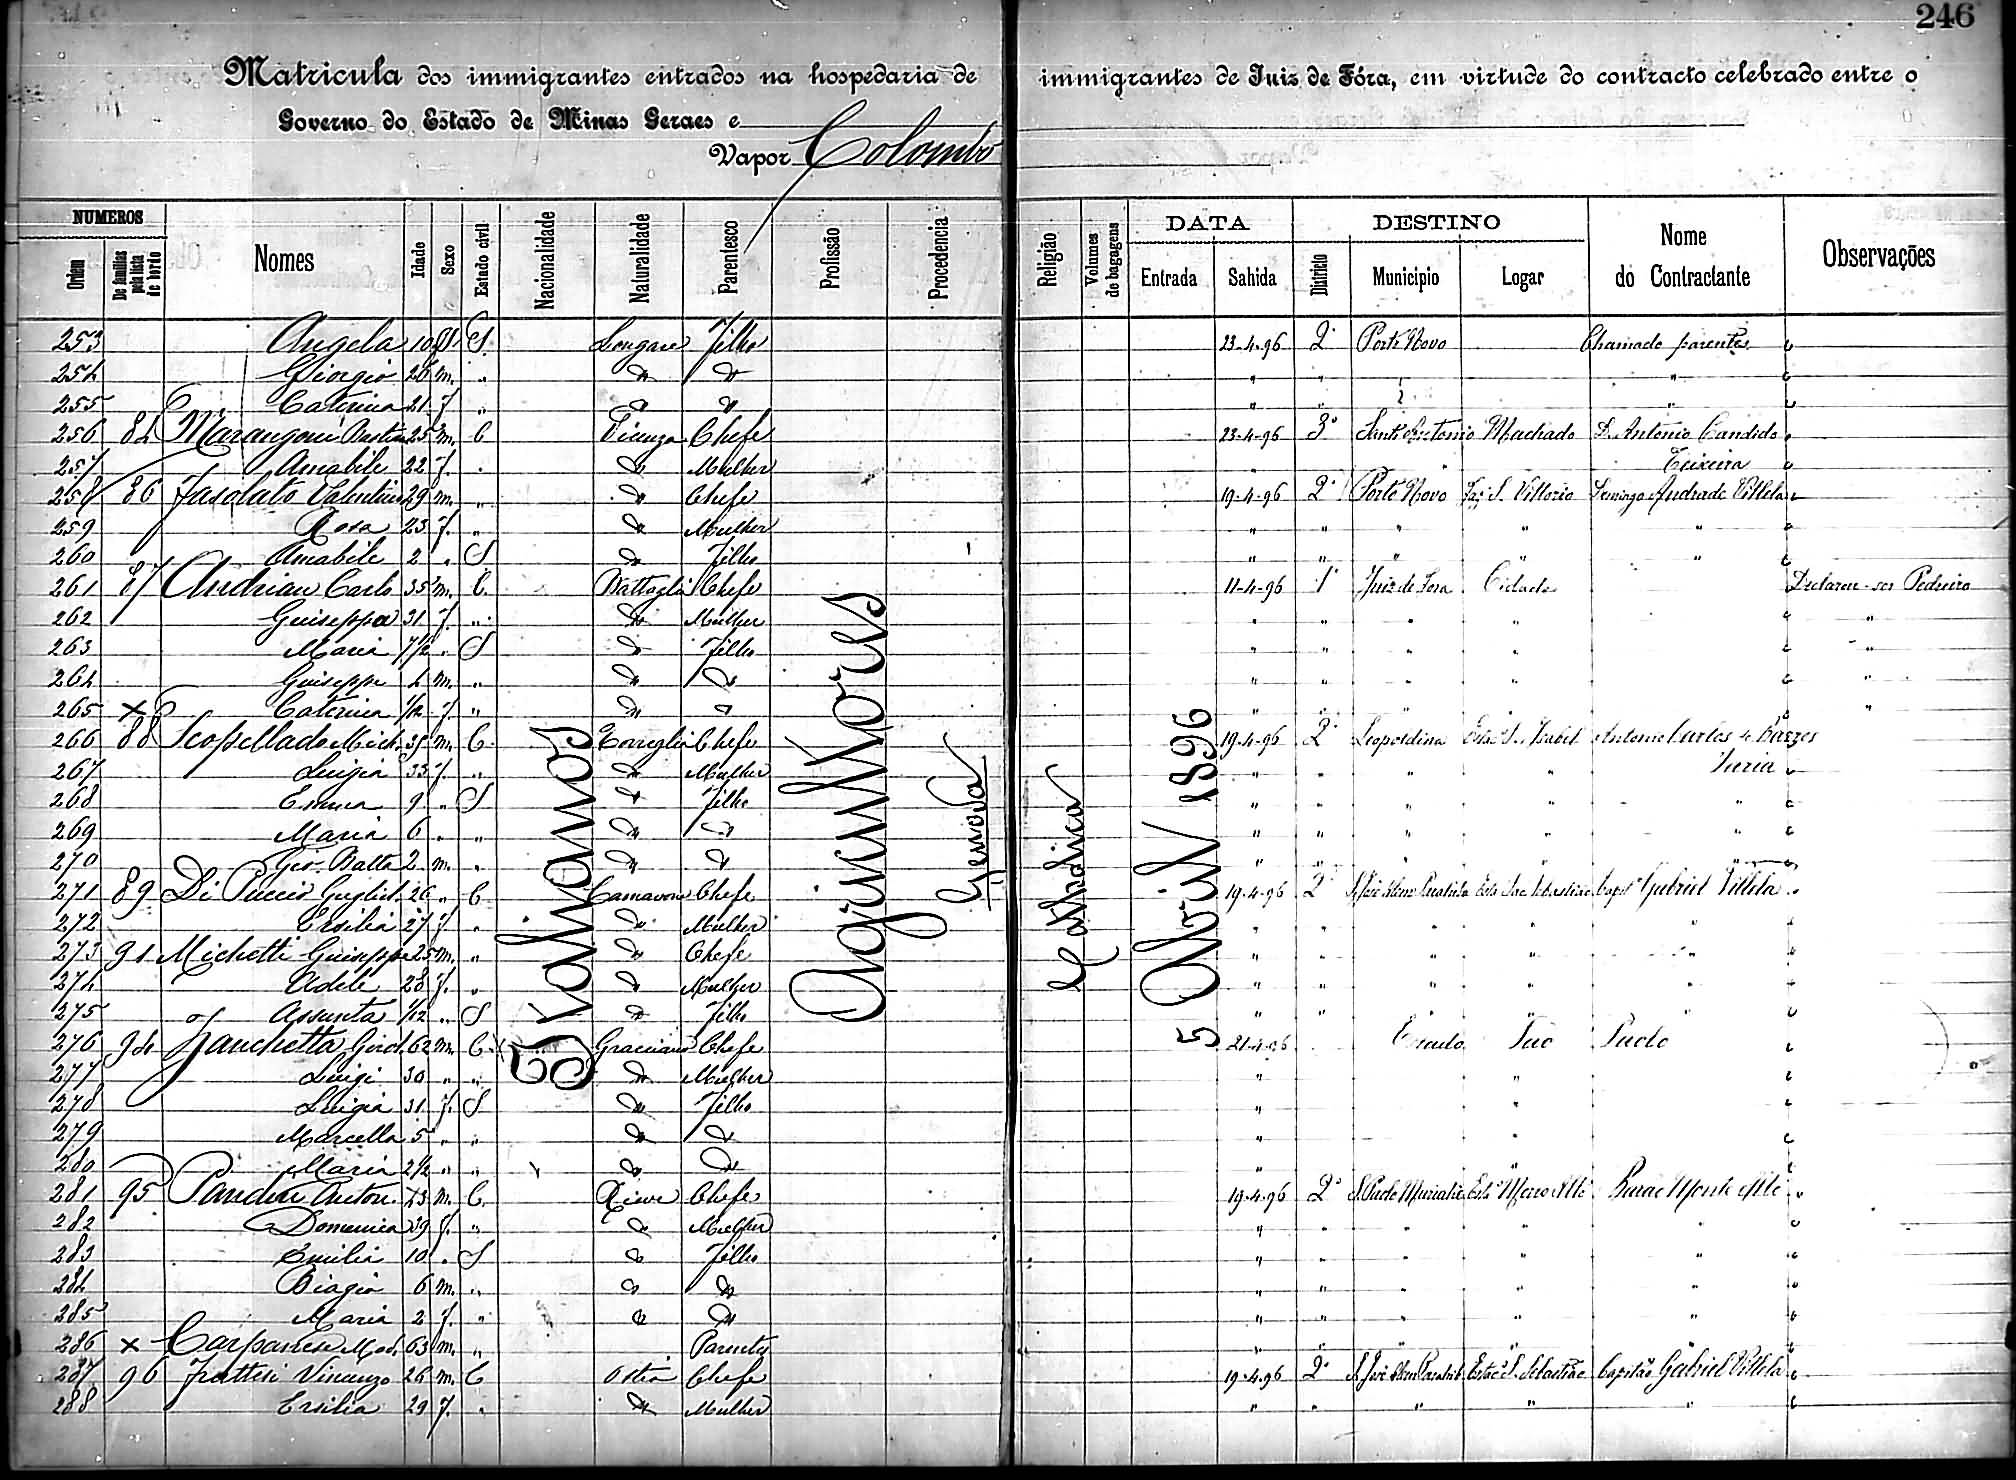 246
Matricula dos immigrantes entrados na hospedaria de immigrantes de Juiz de Fóra, em virtude do contracto celebrado entre o
Governo do Estado de Minas Geraes e
Vapor Colombo
NUMEROS DATA DESTINO
Ordem De familias pela lista de bordo Nomes Idade Sexo Estado civil Nacionalidade Naturalidade Parentesco Profissão Procedencia Religião Volumes de bagagens Entrada Sahida Districto Municipio Logar Nome do Contractante Observações
Italianos Agricultores Genova Catholica 5 Abril 1896
253 Angela 10 S Filho 23-4-96 2º Porto Novo Chamado parentes
254 Giorgio 26 m. " " " "
255 Caterina 21 f. " " "
256 84 Marangoni 25 m. C Chefe 23-4-96 3º Santo Antonio Machado Dr. Antonio Candido
257 Amabile 22 f. Mulher Teixeira
258 86 Fasolato Valentino 29 m. " Chefe 19-4-96 2º Porto Novo Faz. S. Vittorio Domingo Andrade Villela
259 Rosa 23 f. " Mulher " " " " "
260 Amabile 2 " S Filho " " " " "
261 87 Andrian Carlo 35 m. C. Battaglia Chefe 11-4-96 1º Juiz de Fora Cidade Declarou ser Pedreiro
262 Guiseppa 31 f. " Mulher " " " " "
263 Maria 7 1/2 " S Filho " " " " "
264 Guiseppe 4 m. " " " " " "
265 x Caterina 1/12 f. " " " " " "
266 88 Scopellado Mich. m. C. Torreglia Chefe 19-4-96 2º Leopoldina Estac. S. Isabel Antonio Carlos de Barros
267 Luigia 33 f. " Mulher " " " "
268 Emma 9 " S Filho " " " " "
269 Maria 6 " " " " " " "
270 Gio. Batta 2 m. " " " " " "
271 89 Di Puccio Gugliel. 26 " C Chefe 19-4-96 2º Capm Gabriel Villela
272 Ersilia 27 f. " Mulher " " " " "
273 91 Michetti Guiseppe 25 m. " Chefe " " " " "
274 Adele 28 f. " Mulher " " " " "
275 Assunta 1/12 " S Filho " " " " "
276 94 Zanchetta Giod. 62 m. C. Chefe 21-4-96 Estado São Paulo
277 Luigi 30 " " Mulher " "
278 Luigia 31 f. S Filho " "
279 Marcella 5 " " " "
280 Maria 2 1/2 " " " "
281 95 Pandin Anton. m. C. Chefe 19-4-96 2º S. Paulo Muriahé Estc. Morro Alto Barão Monte Alto
282 Domenica 39 f. " Mulher " " " " "
283 Emilia 10 " S Filho " " " " "
284 Biagio 6 m. " " " " " "
285 Maria 2 f. " " " " " "
286 x Carpanese Mod. 63 m. " Parente " " " " "
287 96 Frattesi Vincenzo 26 m. C Ostia Chefe 19-4-96 2º Estac. S. Sebastião Capitão Gabriel Villela
288 Ersilia 29 f. " Mulher " " " " "